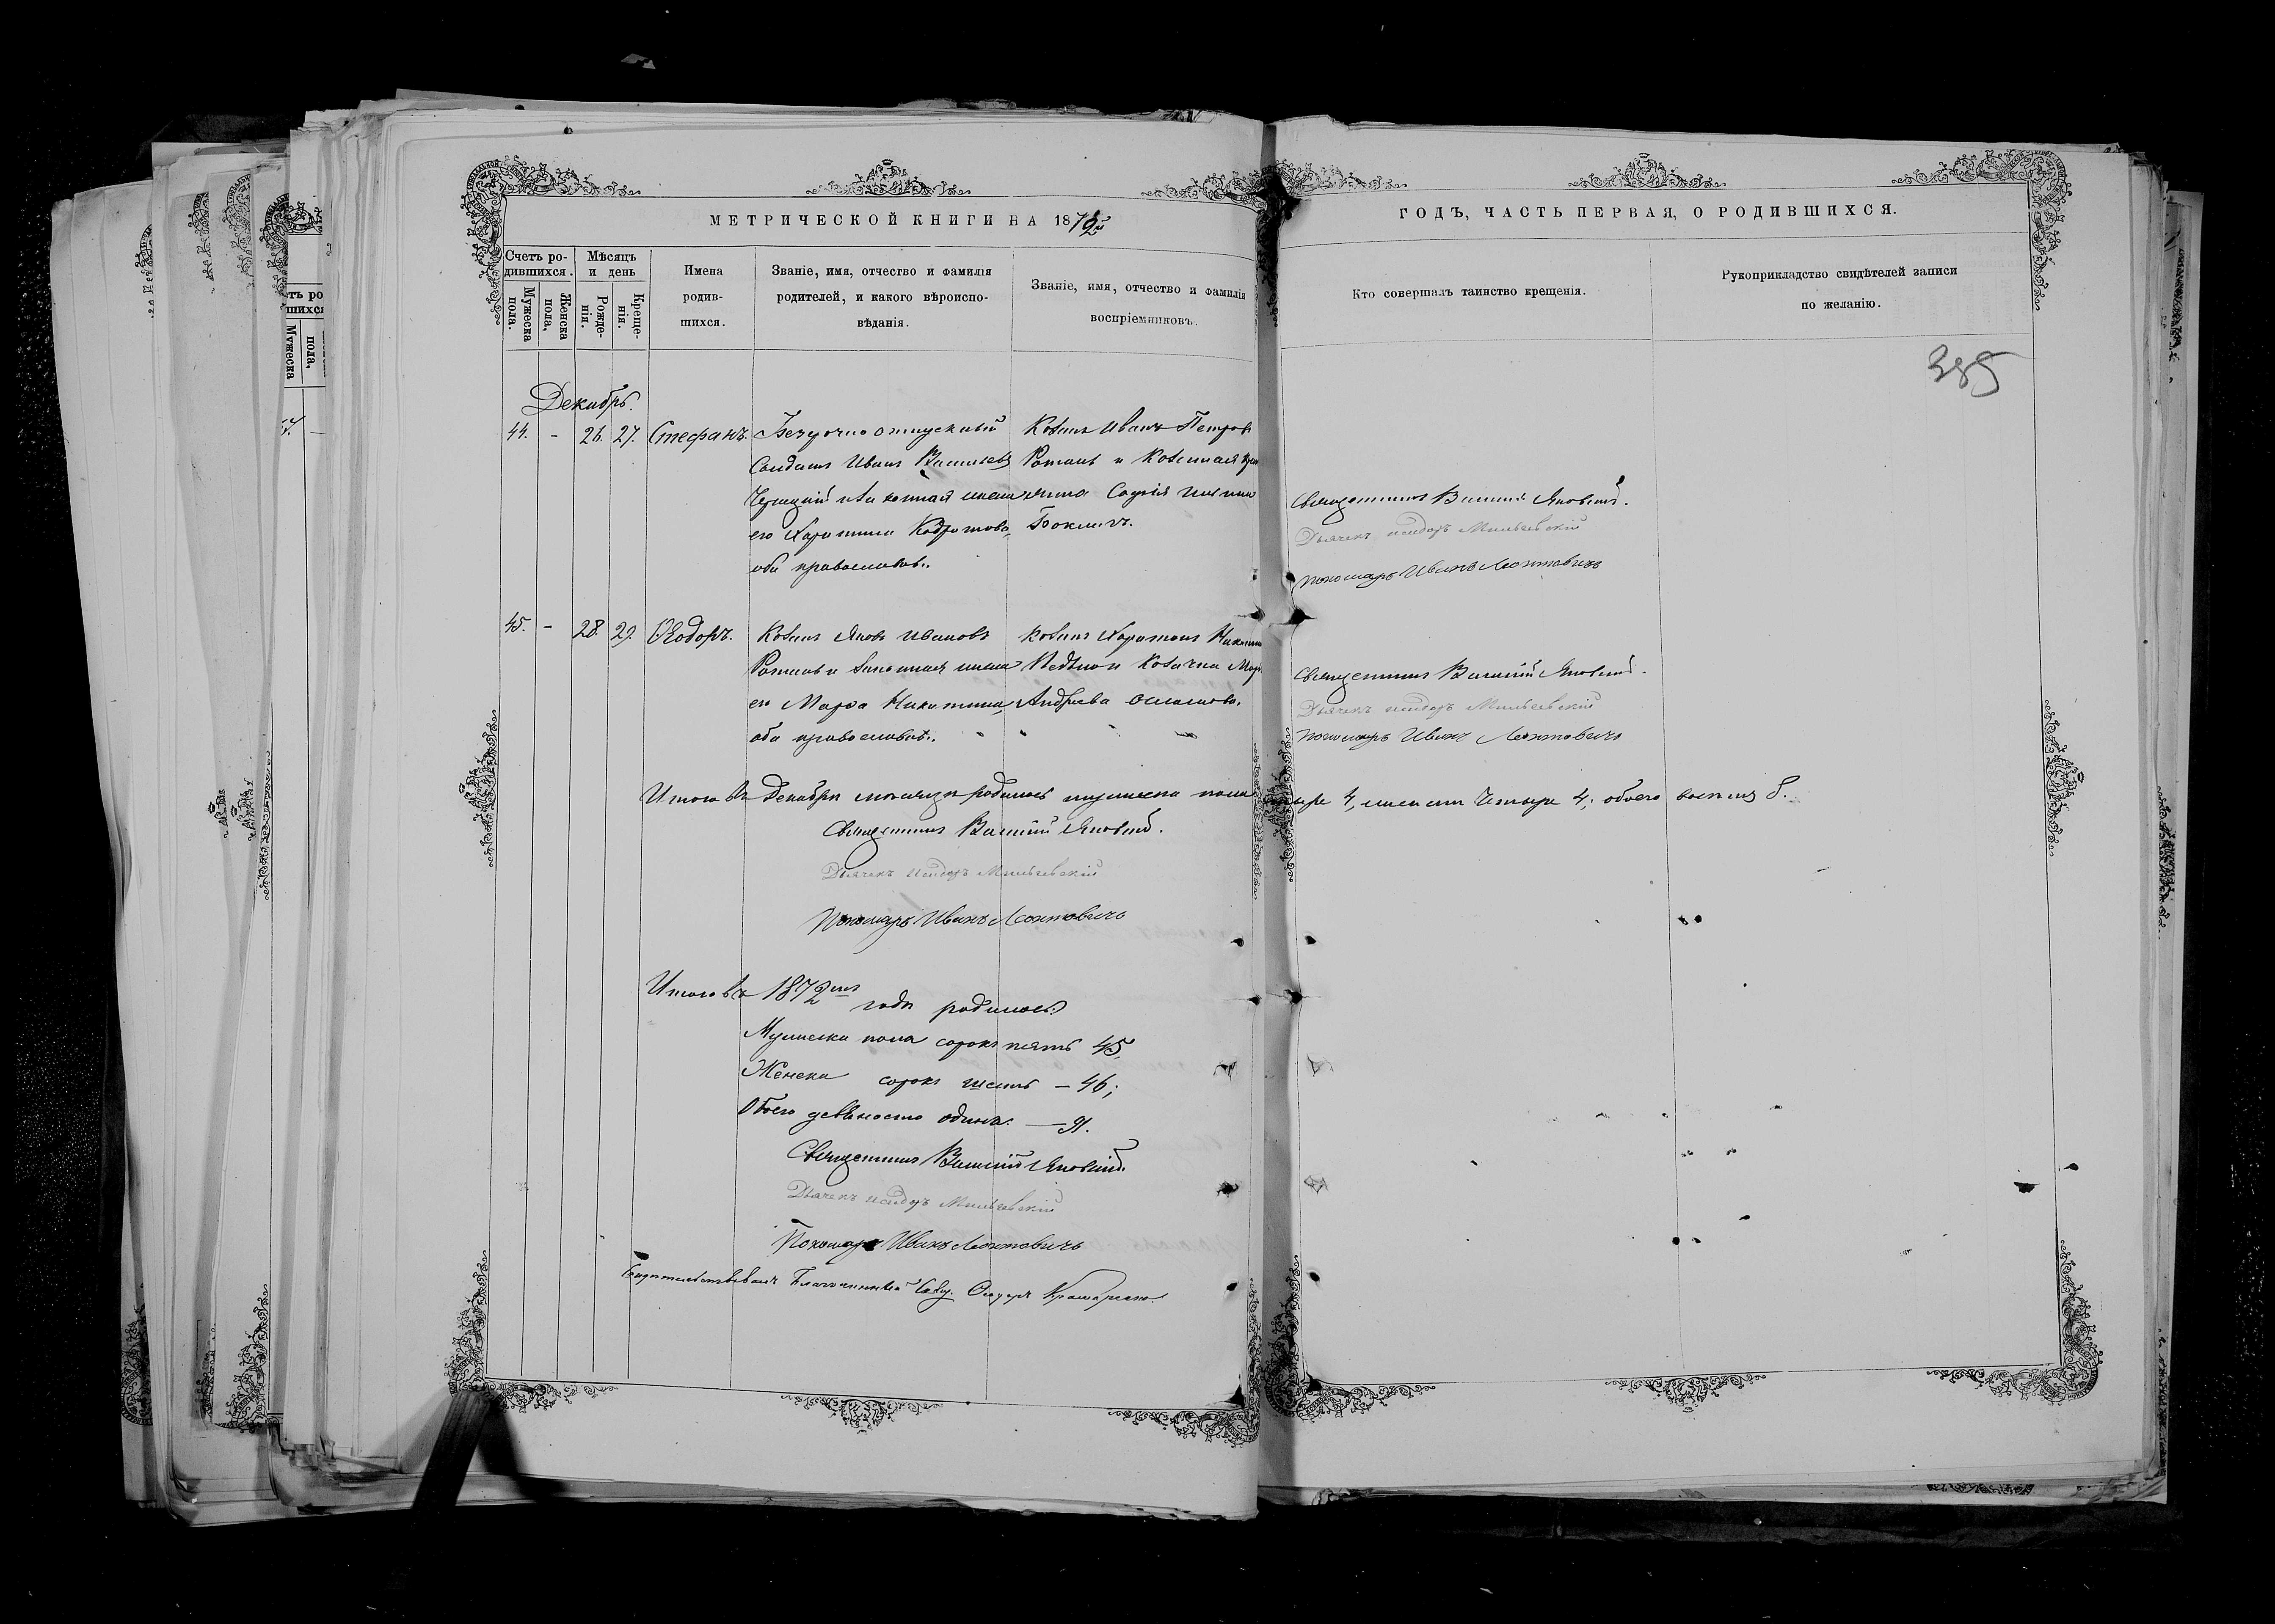 МЕТРИЧЕСКОЙ КНИГИ НА 1872й
ГОДЪ, ЧАСТЬ ПЕРВАЯ, О РОДИВШИХСЯ.
Счетъ ро-
дившихся.
Мужеска
пола.
Женска
пола,
Мѣсяцъ
и день
Рожде-
нія.
Креще-
нія.
Имена
родив-
шихся.
Званіе, имя, отчество и фамилія
родителей, и какого вѣроиспо-
вѣданія.
Званіе, имя, отчество и фамилія
воспріемниковъ.
Кто совершалъ таинство крещенія.
Рукоприкладство свидѣтелей записи
по желанію.
385
Декабрь.
44. - 26. 27. Стефанъ.
Безсрочно отпускный
Солдатъ Иванъ Васильевъ
и законная жена
его Харитина
оба православн.
Козакъ Иванъ Петровъ
и Козачка
Софія
Священникъ Василій Яновскій.
Дьячекъ Исидоръ
Пономарь Иванъ Леонтовичъ
45. - 28. 29. Ѳеодоръ.
Козакъ Яковъ Ивановъ
и законная жена
его Марѳа Никитина,
оба православн.
Козакъ Харитонъ
и Козачка
Андреева
Священникъ Василій Яновскій.
Дьячекъ Исидоръ
Пономарь Иванъ Леонтовичъ
Итого въ Декабрѣ мѣсяцѣ родилось мужеска пола
тыре 4, женска четыре 4; обоего восемь 8.
Священникъ Василій Яновскій.
Дьячекъ Исидоръ
Пономарь Иванъ Леонтовичъ
Итого въ 1872мъ годѣ родилось
Мужеска пола сорокъ пять 45,
Женска сорокъ шесть — 46;
Обоего девяносто одинъ. — 91.
Священникъ Василій Яновскій.
Дьячекъ Исидоръ
Пономарь Иванъ Леонтовичъ
Свидѣтельствовалъ Благочинный Свящ. Ѳеодоръ